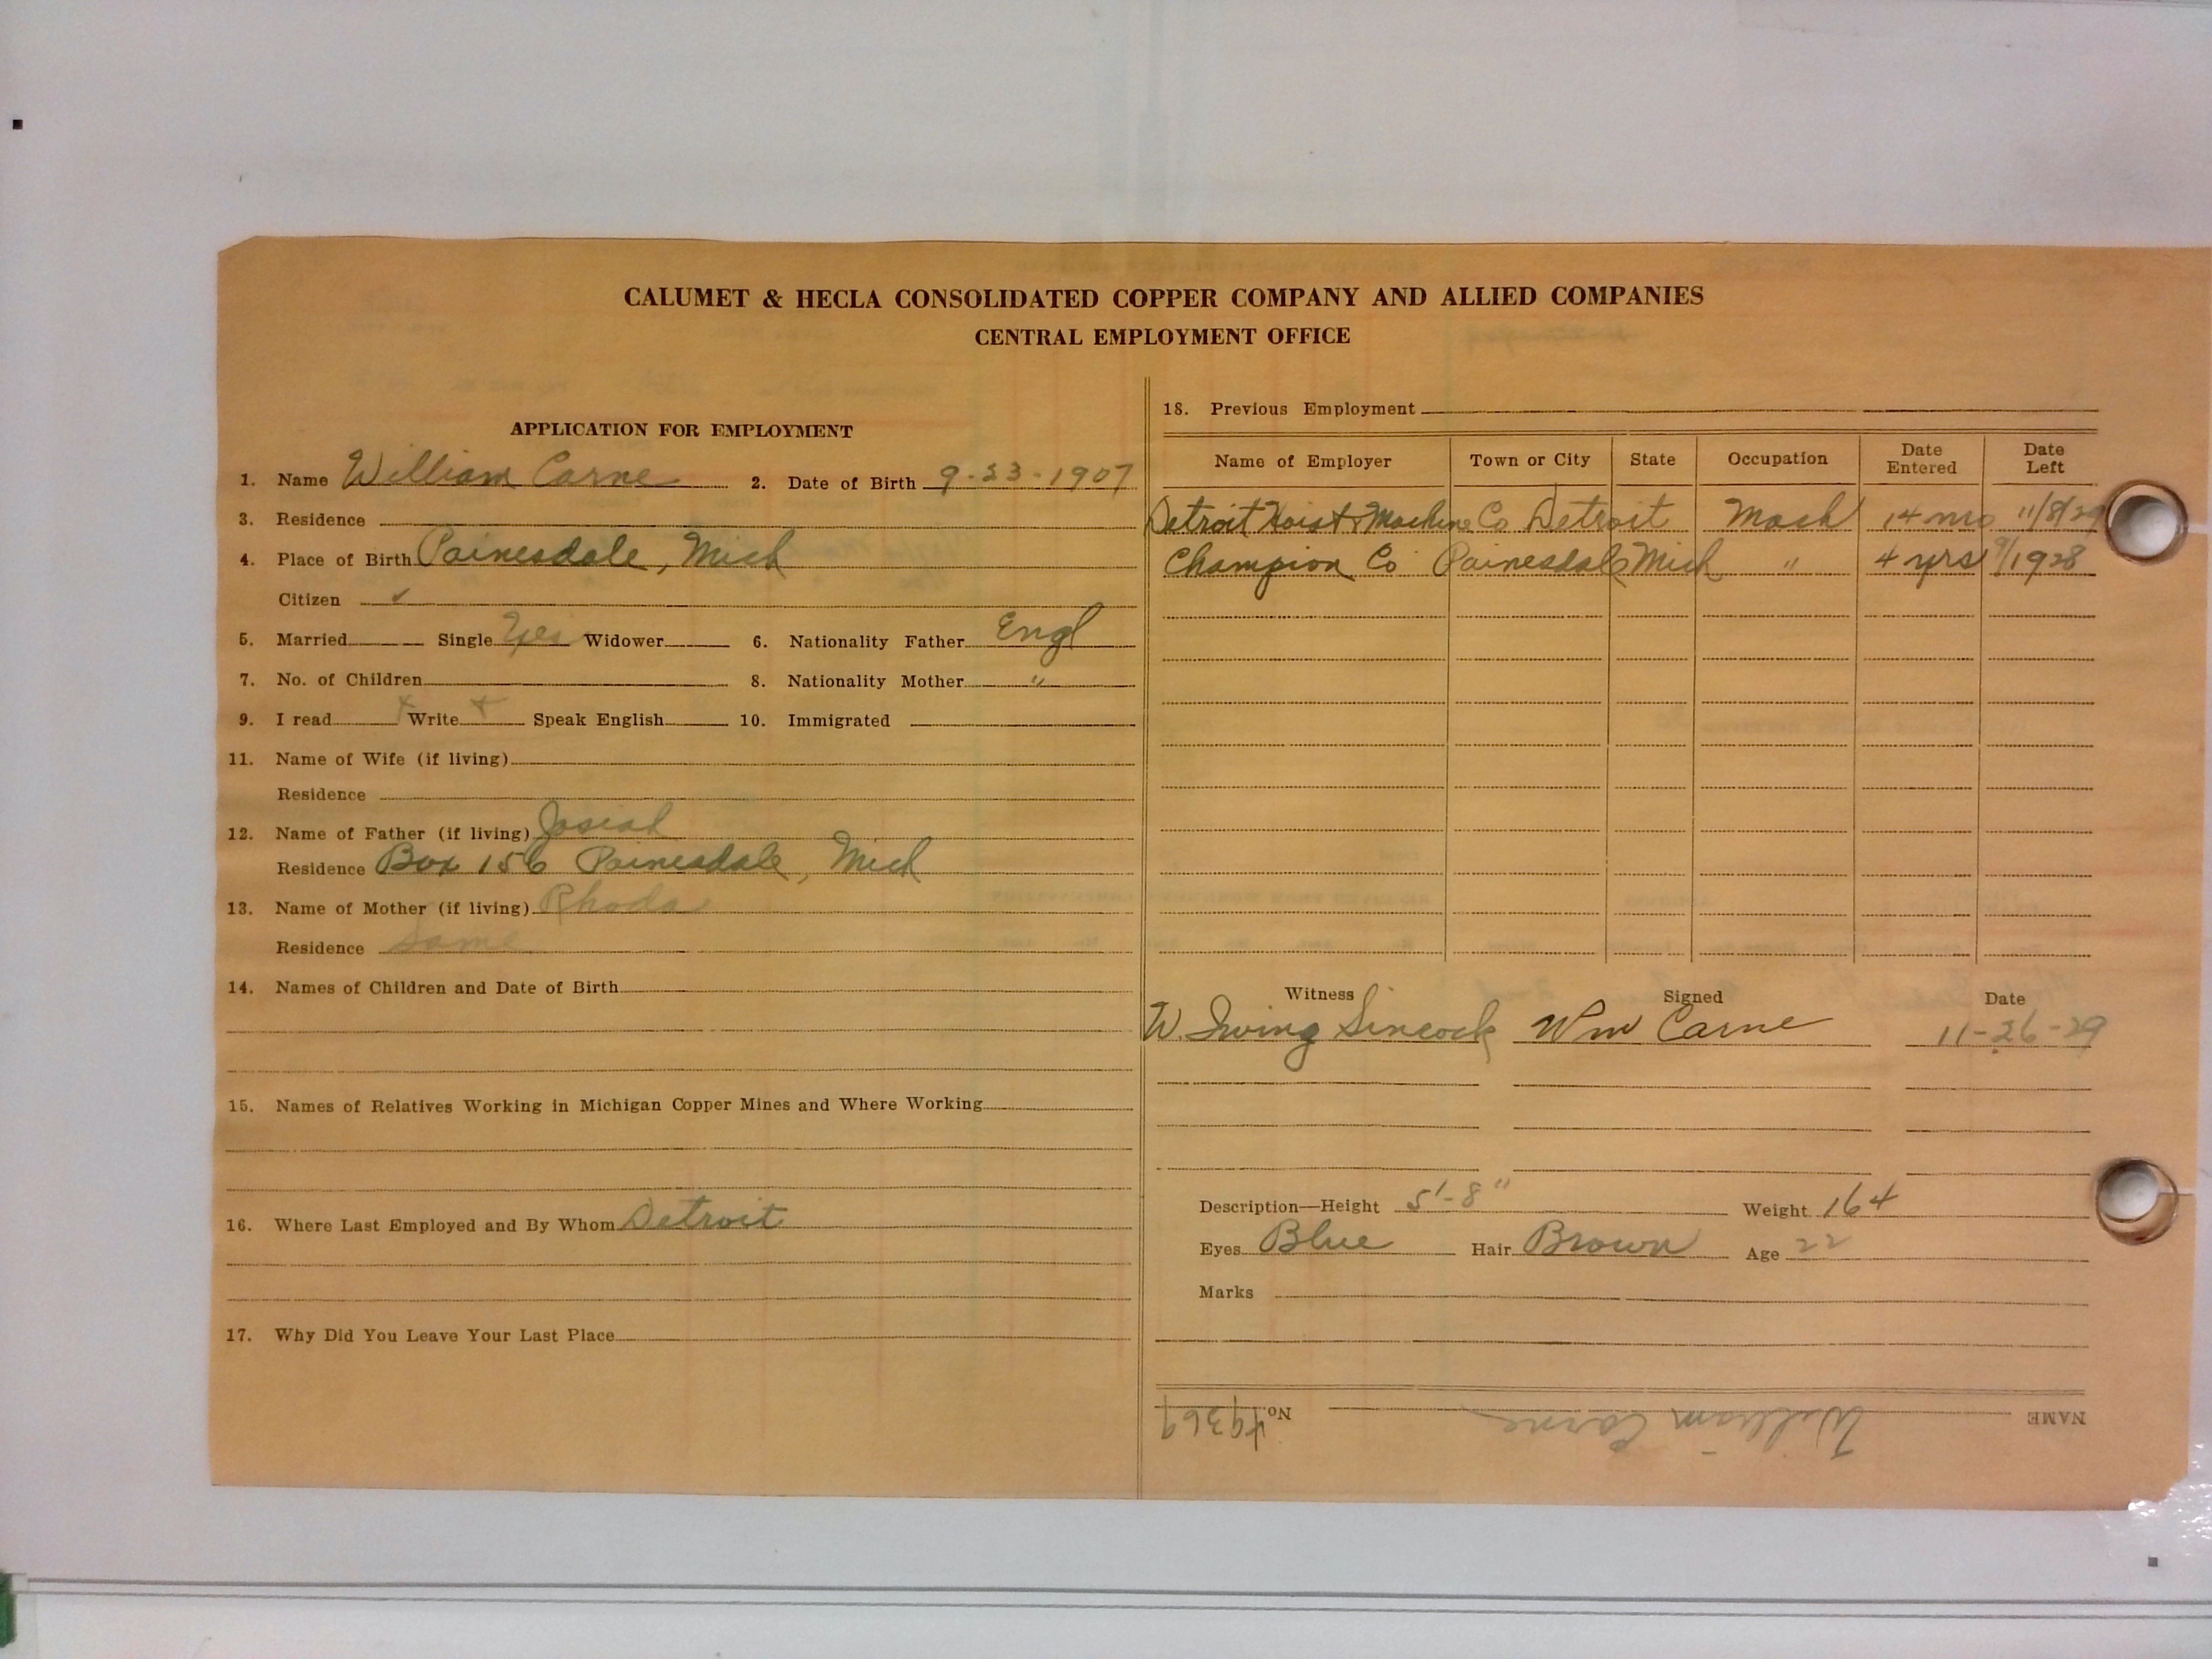 CALUMET & HECLA CONSOLIDATED COPPER COMPANY AND ALLIED COMPANIES
CENTRAL EMPLOYMENT OFFICE
APPLICATION FOR EMPLOYMENT
1. Name William Carne 2. Date of Birth 9-23-1907
3. Residence
4. Place of Birth Painesdale, Mich
Citizen ✓
5. Married Single Yes Widower 6. Nationality Father Engl
7. No. of Children 8. Nationality Mother "
9. I read + Write + Speak English 10. Immigrated
11. Name of Wife (if living)
Residence
12. Name of Father (if living) Josiah
Residence Box 156 Painesdale, Mich
13. Name of Mother (if living) Rhoda
Residence Same
14. Names of Children and Date of Birth
15. Names of Relatives Working in Michigan Copper Mines and Where Working
16. Where Last Employed and By Whom Detroit
17. Why Did You Leave Your Last Place
18. Previous Employment
Name of Employer Town or City State Occupation Date Entered Date Left
Detroit Hoist & Machine Co Detroit Mach 14 mo 11/8/29
Champion Co Painesdale Mich " 4 yrs 9/1928
Witness Signed Date
W. Irving Sincock Wm Carne 11-26-29
Description—Height 5'-8" Weight 164
Eyes Blue Hair Brown Age 22
Marks
NAME William Carne No. 49369